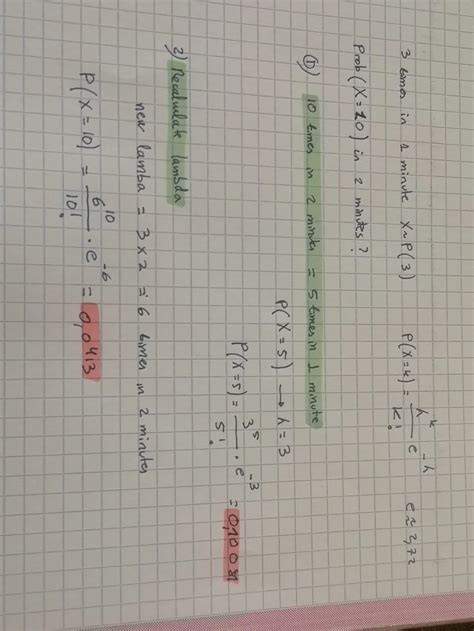 3 times in 1 minute X~P(3) P(X=k) = λ^k/k! e^-λ e≈2,72
Prob(X=10) in 2 minutes?
① 10 times in 2 minutes = 5 times in 1 minute
P(X=5) → λ=3
P(X=5) = 3^5/5! · e^-3 = 0,10081
2) Recalculate lambda
new lamba = 3×2 = 6 times in 2 minutes
P(X=10) = 6^10/10! · e^-6 = 0,0413